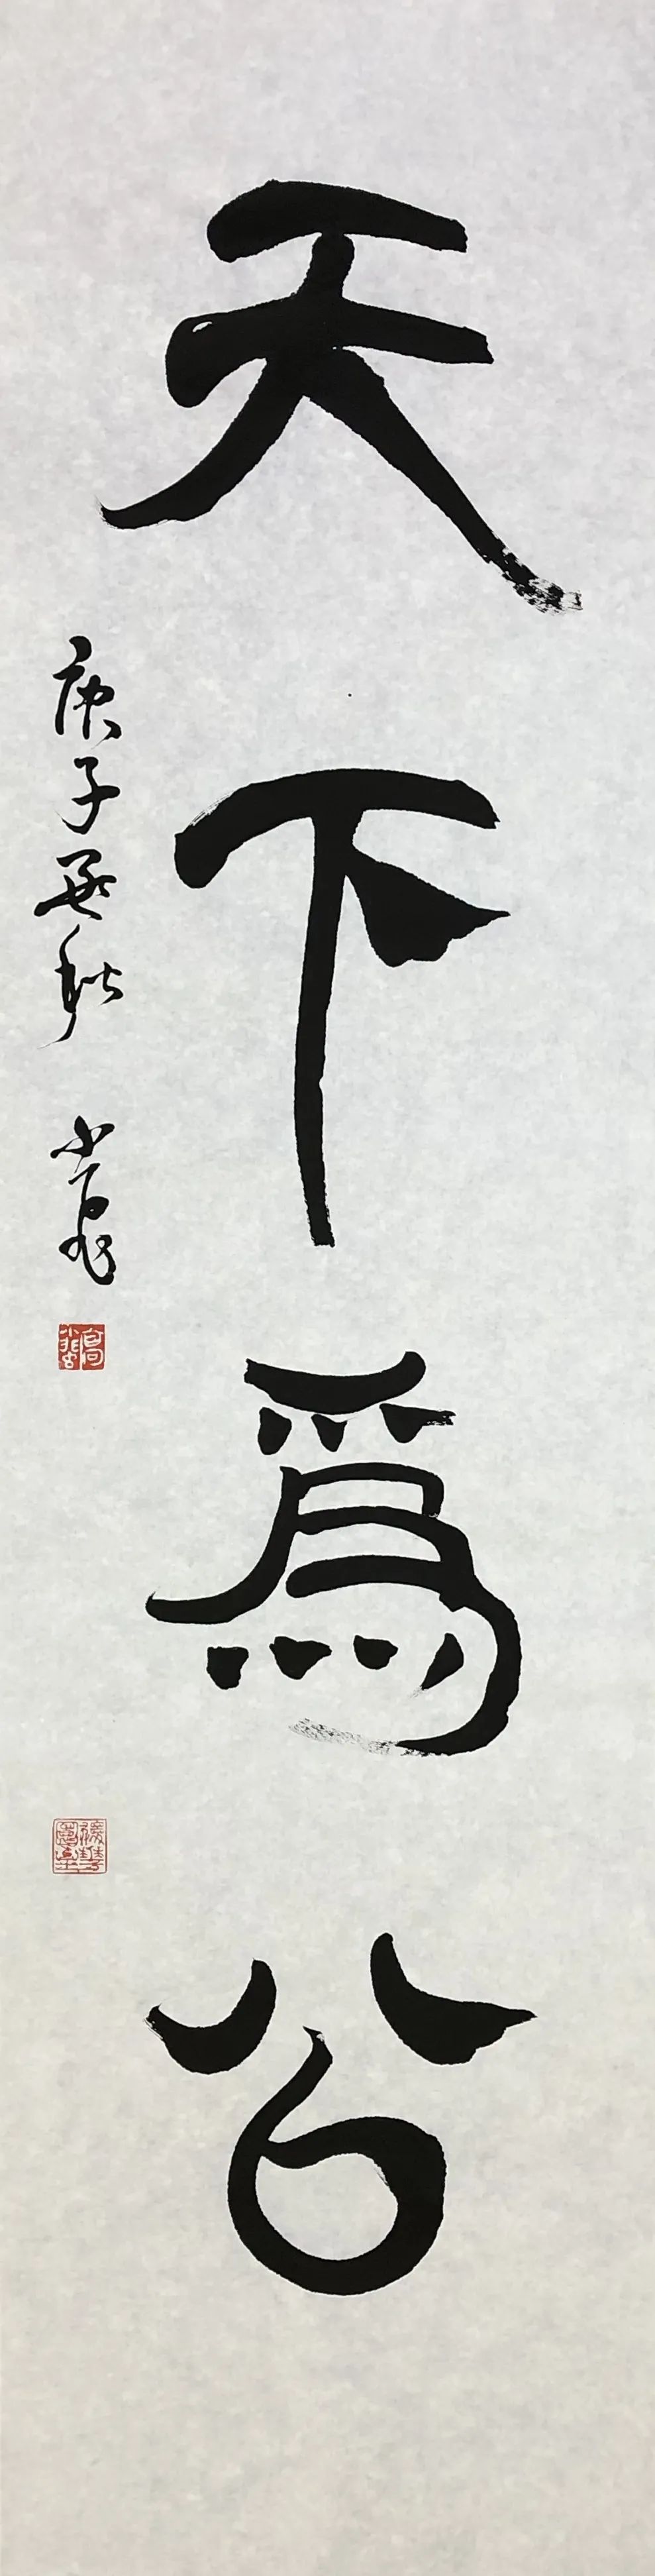 天下為公
庚子孟秋